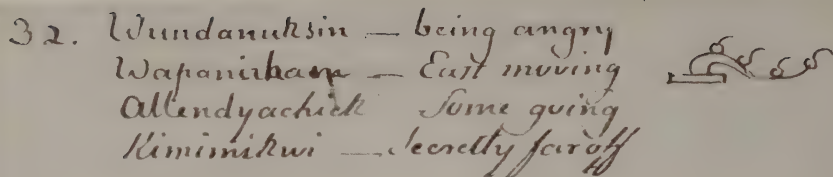 32. Wundanuksin — being angry
Wapanickam — East moving
Allendyachick Some going
Kimimikwi — Secretly far off